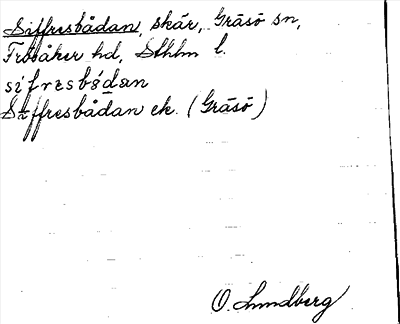 Siffresbådan, skär, Gräsö sn,
Frösåker hd, Sthlm l.
sifrɛsbǻdan
Siffresbådan ek. (Gräsö)
O. Lundberg